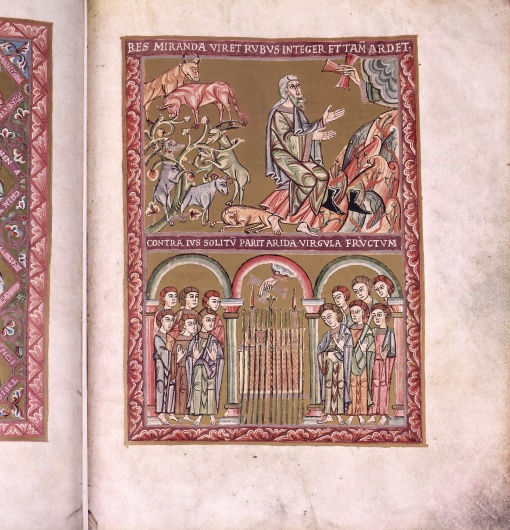 RES MIRANDA VIRET RVBVS INTEGER ET TAM̄ ARDET.
CONTRA IVS SOLITV̄ PARIT ARIDA VIRGVLA FRVCTVM